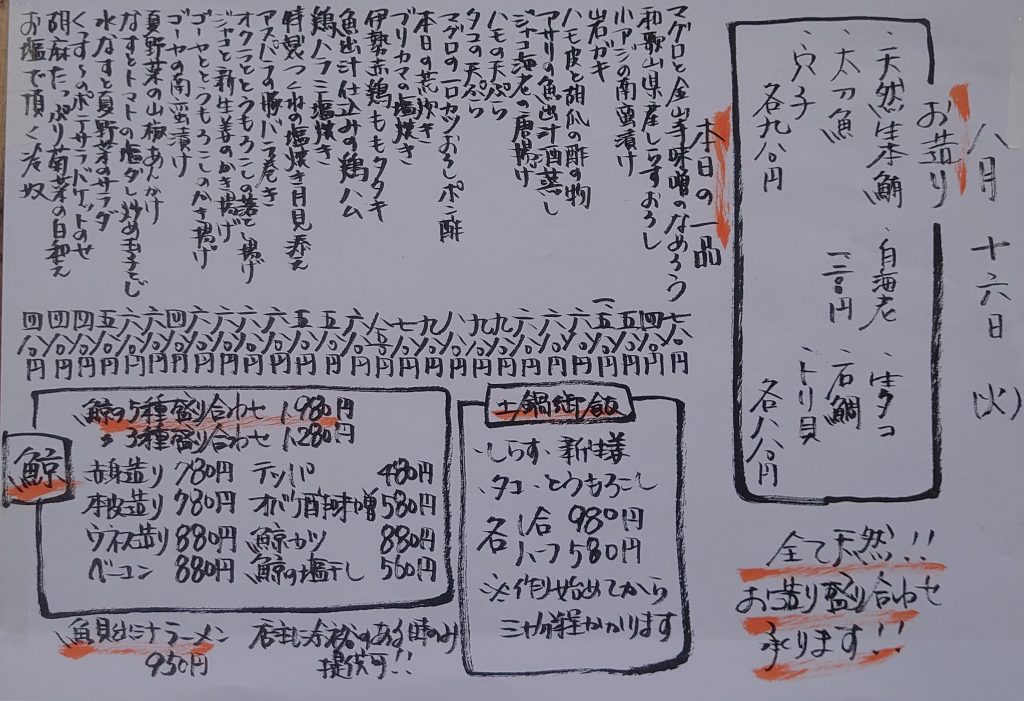 八月十六日(火)
お造り
・天然生本鮪 ・白海老 ・生タコ
・太刀魚 一二八〇円 ・石鯛
・穴子 ・トリ貝
各九八〇円 各八八〇円
全て天然!!
お造り盛り合わせ
承ります!!
本日の一品
マグロと金山寺味噌のなめろう 七八〇円
和歌山県産しらすおろし 四八〇円
小アジの南蛮漬け 五八〇円
岩ガキ
ハモ皮と胡瓜の酢の物 六八〇円
アサリの魚出汁酒蒸し 六八〇円
ジャコ海老の唐揚げ 六八〇円
ハモの天ぷら 九八〇円
タコの天ぷら 九八〇円
マグロの一口カツおろしポン酢 八八〇円
本日の荒炊き 九八〇円
ブリカマの塩焼き 七八〇円
伊勢赤鶏ももタタキ
魚出汁仕込みの鶏ハム 六八〇円
鶏ハラミ塩焼き 五八〇円
特製つくねの塩焼き月見添え 五八〇円
アスパラの豚バラ巻き 六八〇円
オクラととうもろこしの落とし揚げ 六八〇円
ジャコと新生姜のかき揚げ 六八〇円
ゴーヤととうもろこしのかき揚げ 六八〇円
ゴーヤの南蛮漬け 四八〇円
夏野菜の山椒あんかけ 六八〇円
なすとトマトの塩ダレ炒め玉子とじ 六八〇円
水なすと夏野菜のサラダ 五八〇円
くんすーのポテサラバケットのせ 四八〇円
胡麻たっぷり菊菜の白和え 四八〇円
お塩で頂く冷奴 四八〇円
土鍋御飯
・しらす・新生姜
・タコ・とうもろこし
各 1合 980円
ハーフ 580円
※作り始めてから
三十分程かかります
鯨
鯨の5種盛り合わせ 1,980円
〃 3種盛り合わせ 1,280円
赤身造り 780円 テッパ 480円
本皮造り 780円 オバケ酢味噌 580円
ウネス造り 880円 鯨カツ 880円
ベーコン 880円 鯨の塩干し 560円
魚貝出汁ラーメン
950円
店主に余裕のある時のみ
提供可!!